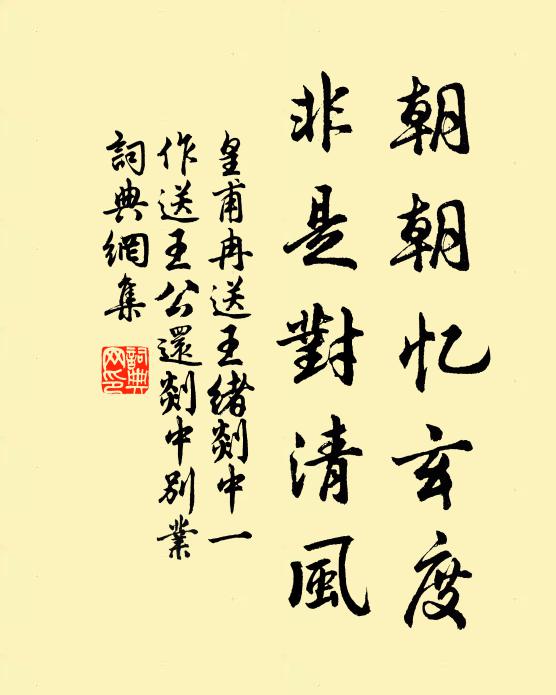 朝朝忆玄度
非是對清風
皇甫冉送王緒剡中一
作送王公還剡中别業
詞典網集
詞典網印